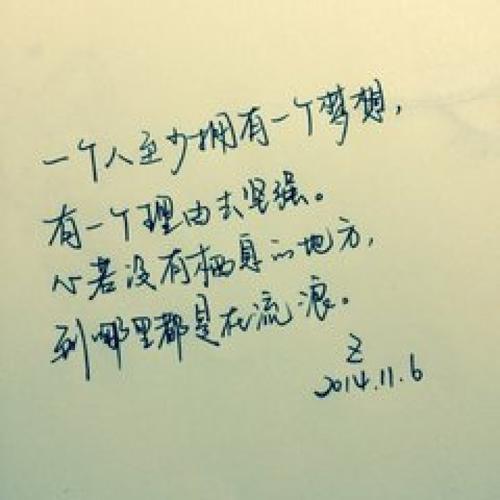 一个人至少拥有一个梦想，
有一个理由去坚强。
心若没有栖息的地方，
到哪里都是在流浪。
Z
2014.11.6